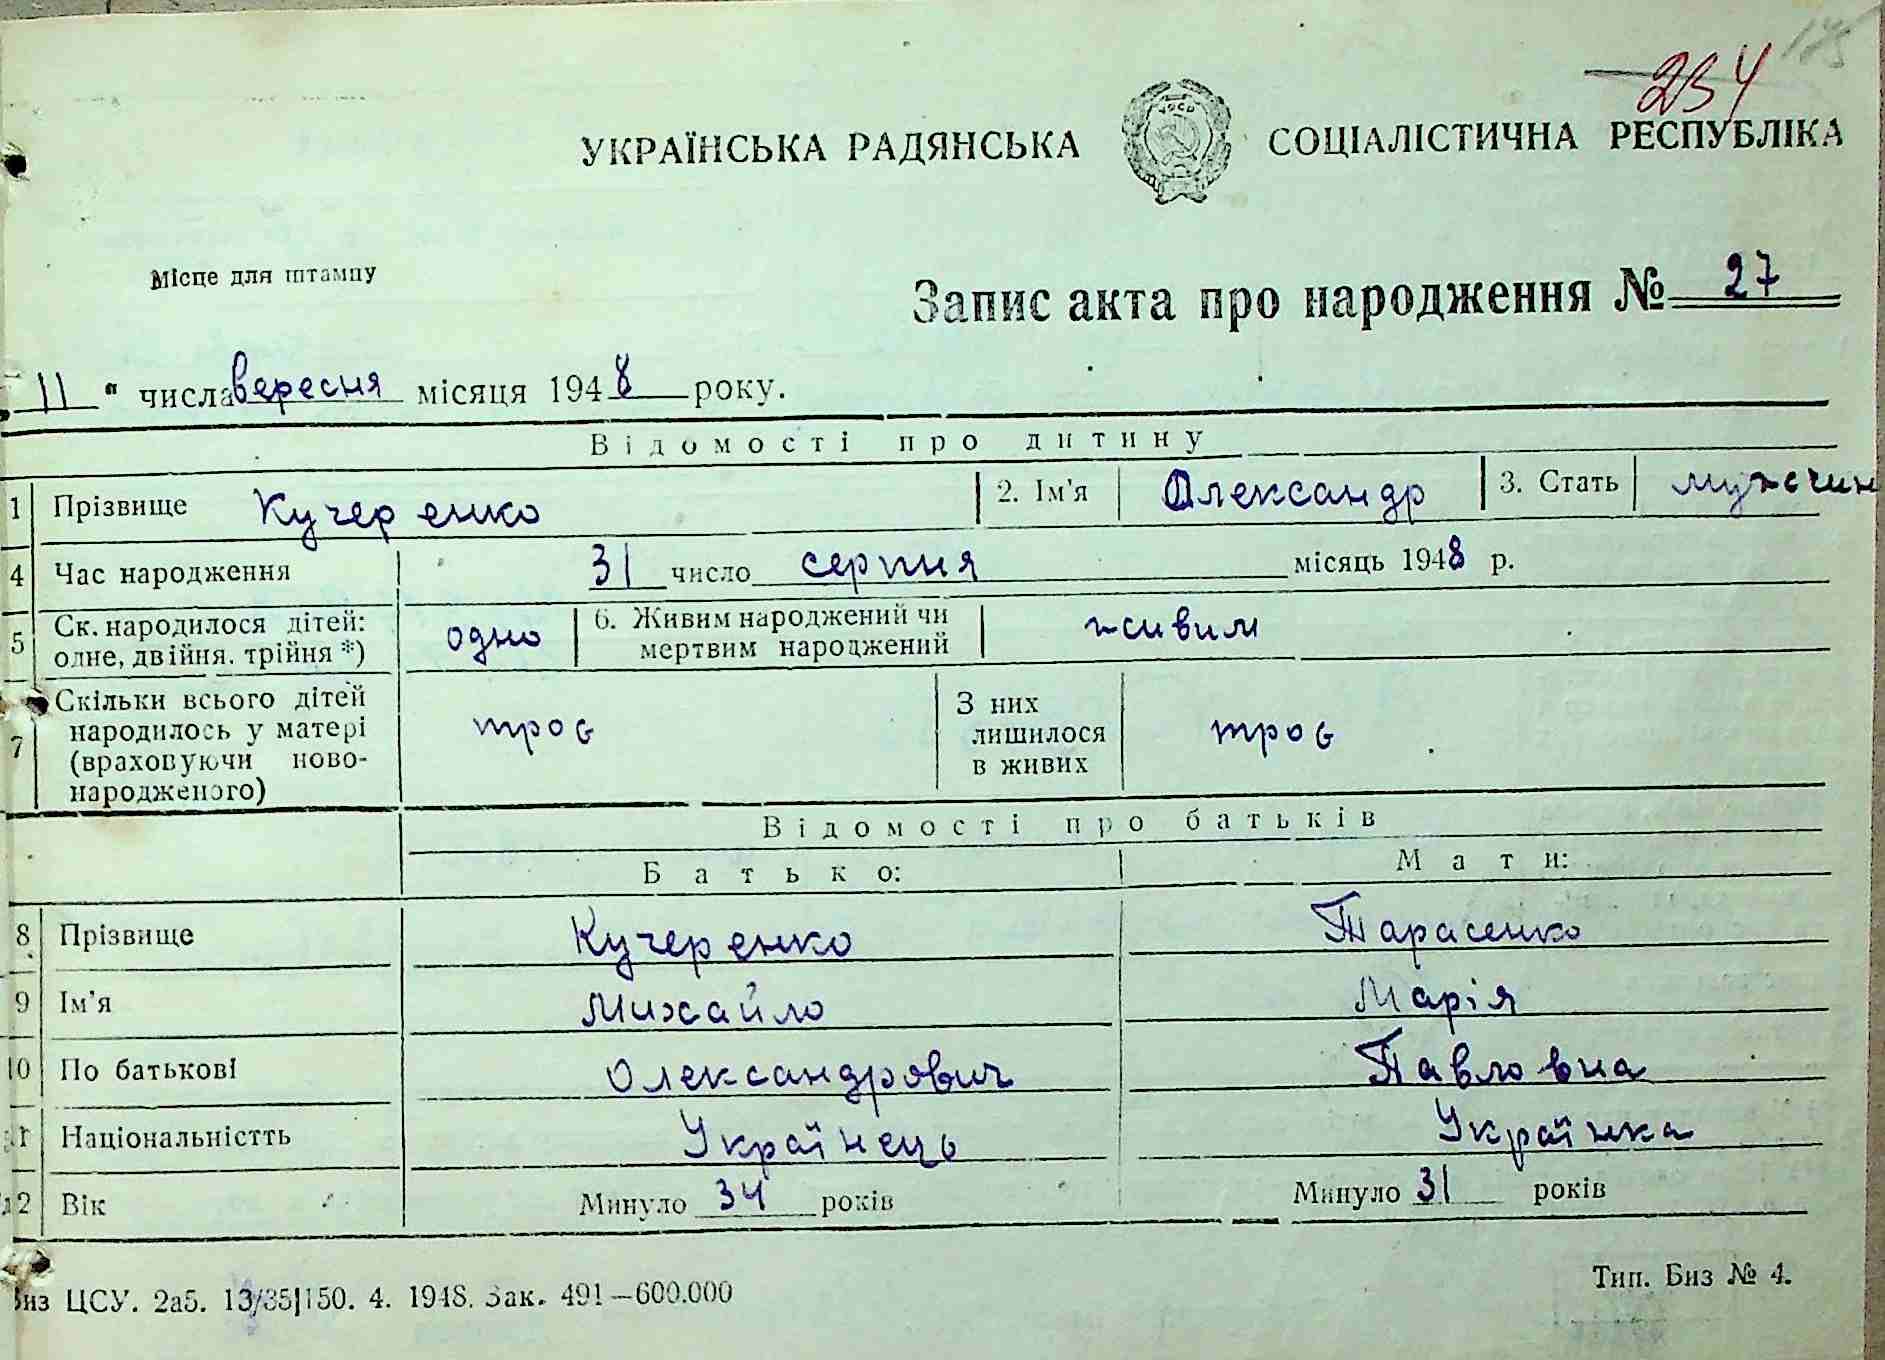 175
234
УКРАЇНСЬКА РАДЯНСЬКА СОЦІАЛІСТИЧНА РЕСПУБЛІКА
УРСР
Місце для штампу
Запис акта про народження № 27
„ 11 “ числа вересня місяця 1948 року.
Відомості про дитину
1 Прізвище Кучеренко 2. Ім'я Олександр 3. Стать мужчин
4 Час народження 31 число серпня місяць 1948 р.
5 Ск. народилося дітей: одне, двійня. трійня *) одно 6. Живим народжений чи мертвим народжений живим
7 Скільки всього дітей народилось у матері (враховуючи ново-народженого) троє З них лишилося в живих троє
Відомості про батьків
Батько: Мати:
8 Прізвище Кучеренко Тарасенко
9 Ім'я Михайло Марія
10 По батькові Олександрович Павловна
11 Національністть Українець Українка
12 Вік Минуло 34 років Минуло 31 років
Биз ЦСУ. 2а5. 13/35|150. 4. 1948. Зак. 491—600.000 Тип. Биз № 4.